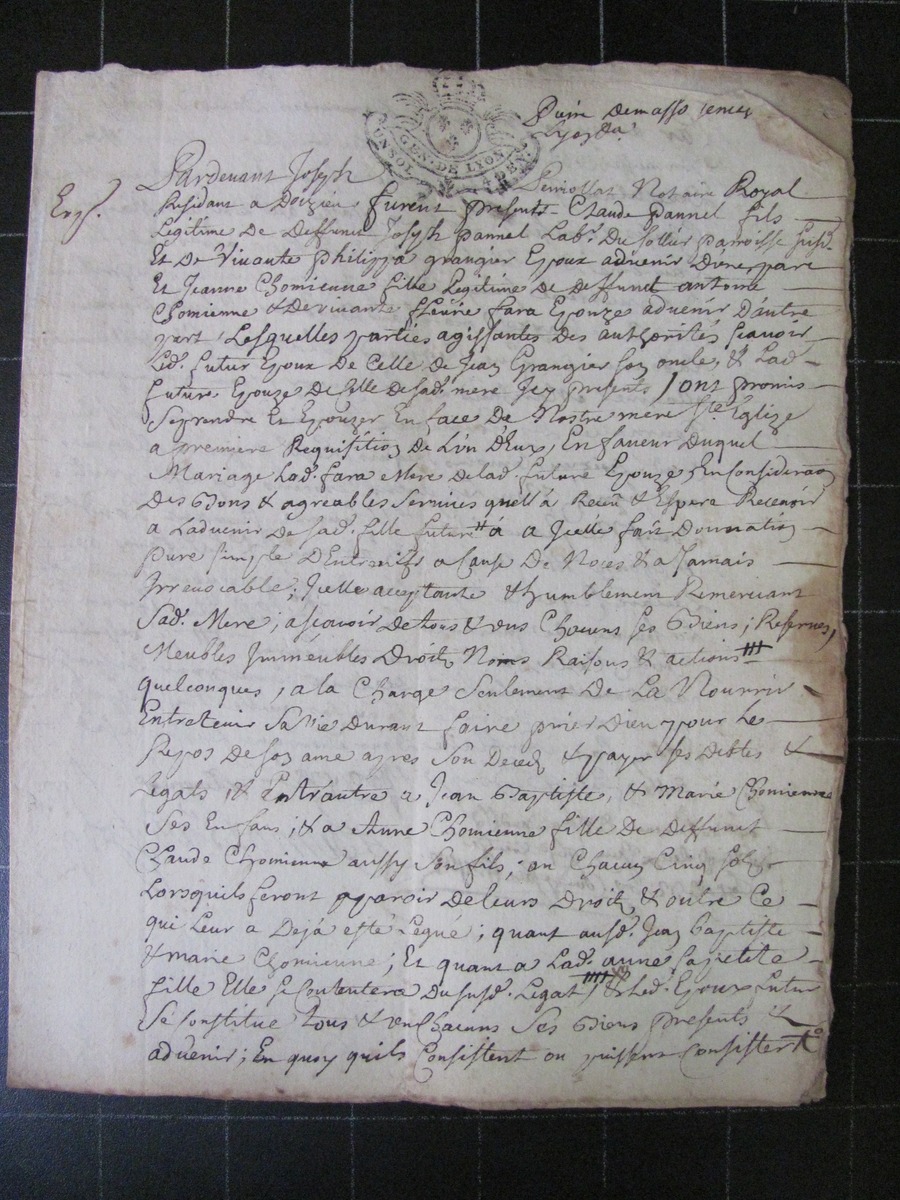 GEN. DE LYON
Pardevant Joseph Perriollat Notaire Royal
Exp.
Residant a Doizieu furent presents Claude pannel fils
Legitime De Deffunt Joseph pannel Lab.r Du sollier parroisse susd.
Et De Vivante philippa grangier Epoux advenir Dune part
Et Jeanne Chomienne fille Legitime De Deffunct antoine
Chomienne & De vivante fleurie fara Epouze advenir D'autre
part, Lesquelles parties agissantes Des authorités scavoir
Led. futur Epoux De Celle de Jean Grangier son oncle, & Lad.
future Epouze De Celle de sad. mere Icy presents / ont promis
Se prendre Et Epouzer En face De Nostre mere Ste. Eglize
a premiere Requisition De L'un D'Eux, En faveur Duquel
Mariage Lad. fara Mere de Lad. future Epouze, En Consideraon
Des Bons & agreables Services quell'à Receu & Espere Recevoir
a Ladvenir De sad. fille futur# à a Jcelle fait Donnation
pure simple D'Entrevifs a Cause De Noces & a Jamais
Irrevocable, Jcelle acceptante & humblement Remerciant
Sad. Mere, ascavoir De tous & uns Chacuns ses Biens, Reserves,
Meubles Immeubles Droits Noms Raisons & actions
quelconques, a la Charge Seulement De La Nourrir
Entretenir Sa Vie Durant faire prier Dieu pour Le
Repos De son ame apres Son Deced & payer ses debtes &
Legats, & Entr'autre a Jean Baptiste, & Marie Chomienne
Ses Enfans, & a Anne Chomienne fille De Deffunct
Claude Chomienne aussy Son fils, an Chacun Cinq sols
Lorsquils feront aparoir De leurs Droits & outre Ce
qui Leur a Dejá esté Legué; quant ausd. Jean Baptiste
& marie Chomienne; Et quant a Lad. anne sa petite
fille Elle se Contentera Du susd. Legat / & Led. Epoux futur
Se Constitue tous & un Chacuns Ses Biens presents &
advenir; En quoy quils Consistent ou puissent Consister